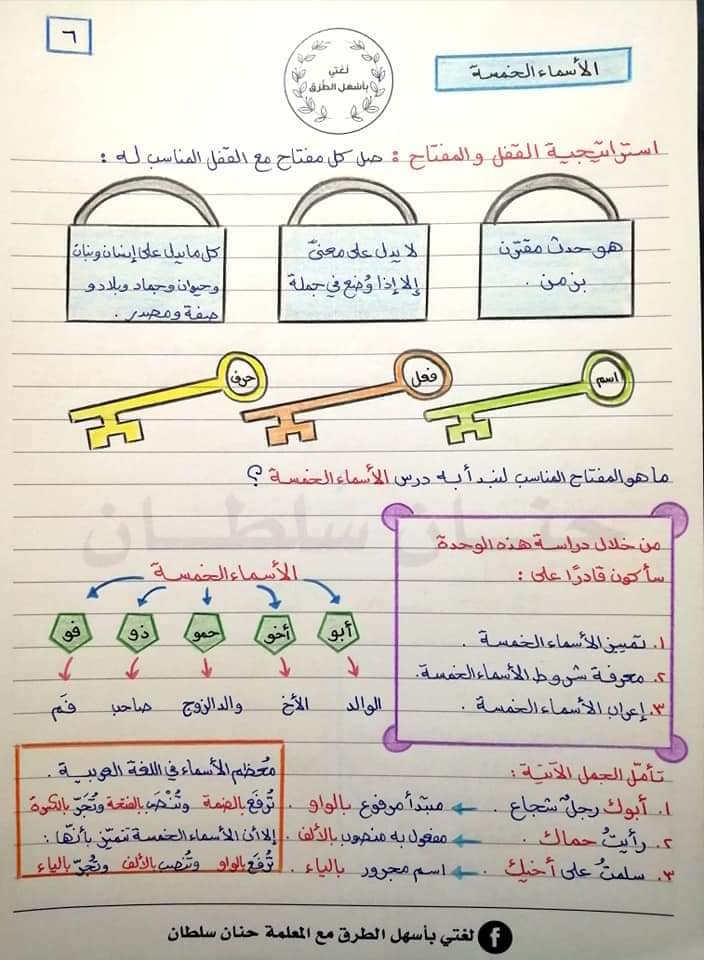 ٦
لغتي
بأسهل الطرق
الأسماء الخمسة
استراتيجية القفل والمفتاح : صل كل مفتاح مع القفل المناسب له :
هو حدث مقترن
بزمن .
لا يدل على معنىً
إلا إذا وُضع في جملة
كل ما يدل على إنسان ونبات
وحيوان وجماد وبلاد و
صفة ومصدر .
اسم
فعل
حرف
ما هو المفتاح المناسب لنبدأ به درس الأسماء الخمسة ؟
حنان سلطان
من خلال دراسة هذه الوحدة
سأكون قادرًا على :
١. تمييز الأسماء الخمسة .
٢. معرفة شروط الأسماء الخمسة .
٣. إعراب الأسماء الخمسة .
الأسماء الخمسة
أبو أخو حمو ذو فو
الوالد الأخ والد الزوج صاحب فَم
تأمّل الجمل الآتية :
١. أبوك رجلٌ شجاع . ← مبتدأ مرفوع بالواو .
٢. رأيتُ حماك . ← مفعول به منصوب بالألف .
٣. سلمتُ على أخيك . ← اسم مجرور بالياء .
مُعظم الأسماء في اللغة العربية .
تُرفَع بالضمة وتُنْصَب بالفتحة وتُجَرّ بالكسرة
إلا انّ الأسماء الخمسة تتميّز بأنّها :
تُرفَع بالواو وتُنصب بالألف وتُجرّ بالياء
لغتي بأسهل الطرق مع المعلمة حنان سلطان